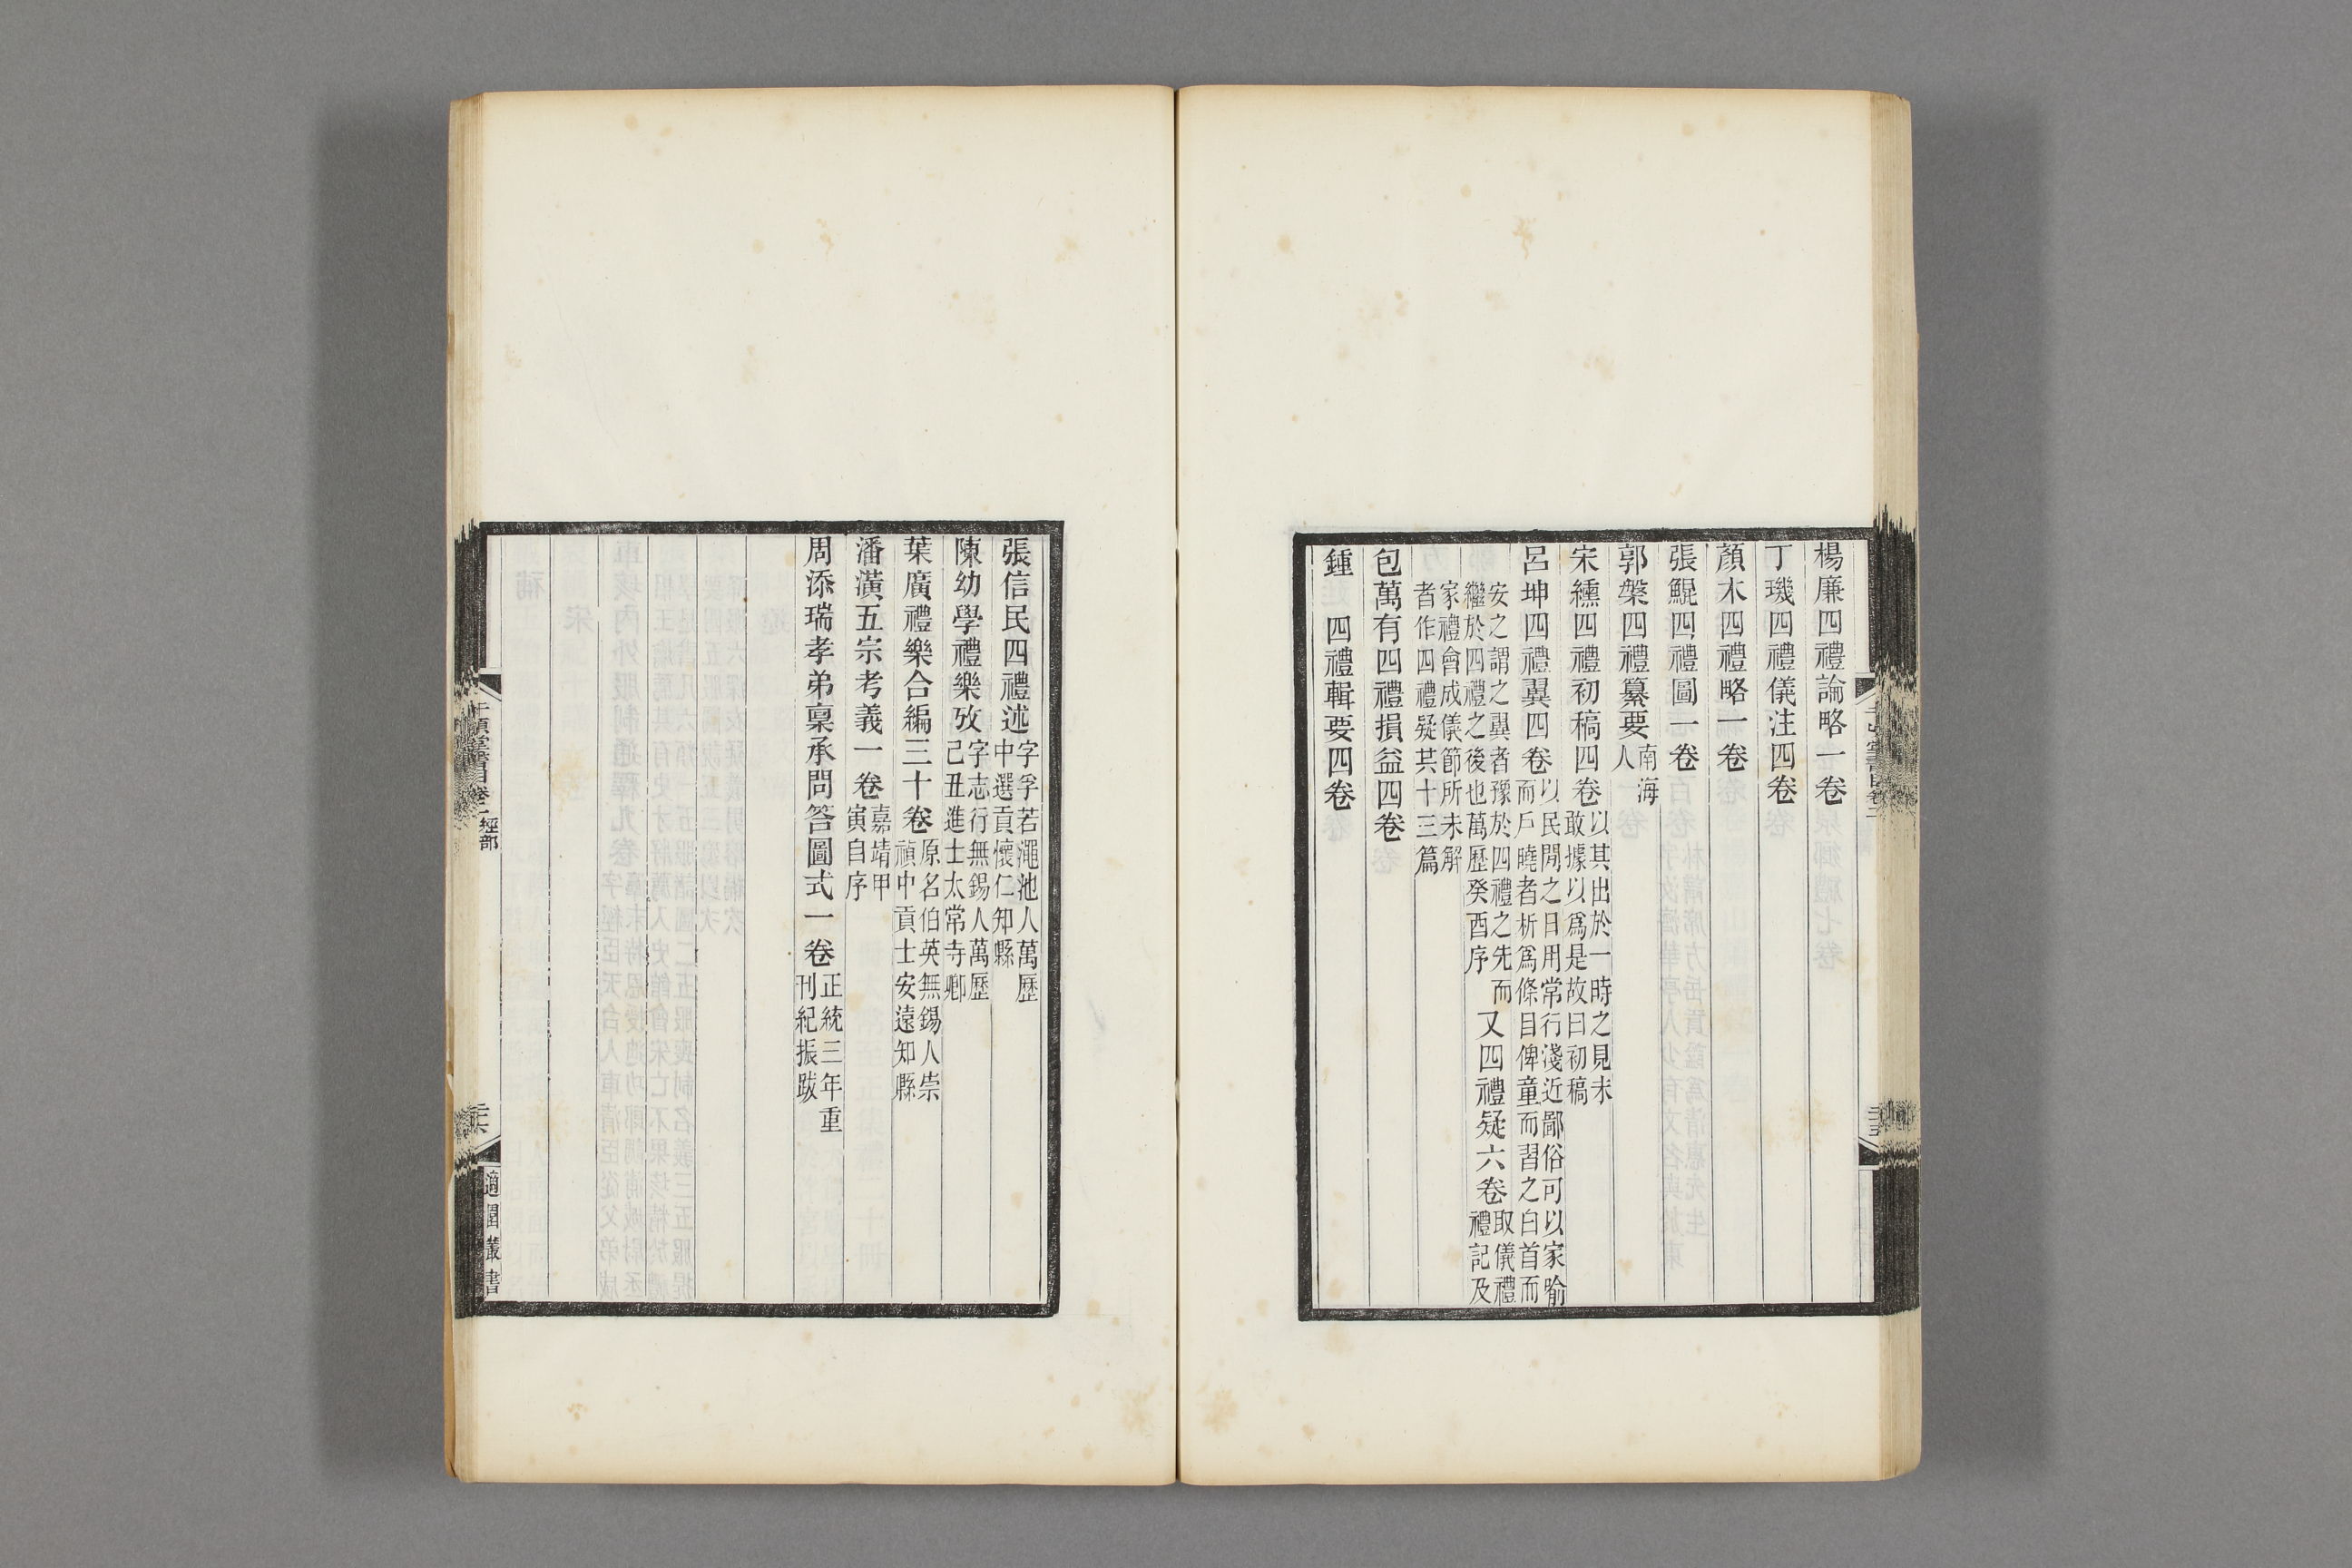 楊廉四禮論略一卷
丁璣四禮儀注四卷
顏木四禮略一卷
張鯤四禮圖一卷
郭槃四禮纂要南海人
宋纁四禮初稿四卷以其出於一時之見未敢據以爲是故曰初稿
呂坤四禮翼四卷以民閒之日用常行淺近鄙俗可以家喻而戶曉者析爲條目俾童而習之白首而
安之謂之翼者豫於四禮之先而繼於四禮之後也萬歷癸酉序又四禮疑六卷取儀禮禮記及
家禮會成儀節所未解者作四禮疑其十三篇
包萬有四禮損益四卷
鍾　四禮輯要四卷
張信民四禮述字孚若澠池人萬歷中選貢懷仁知縣
陳幼學禮樂攷字志行無錫人萬歷己丑進士太常寺卿
葉廣禮樂合編三十卷原名伯英無錫人崇禎中貢士安遠知縣
潘潢五宗考義一卷嘉靖甲寅自序
周添瑞孝弟稟承問答圖式一卷正統三年重刊紀振跋
千頃堂書目卷二經部
二十六
適園叢書